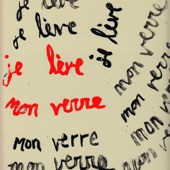 je lève
je lève
je lève
je lève
mon verre
mon verre
mon verre
mon verre
mon verre
mon verre
mon verre